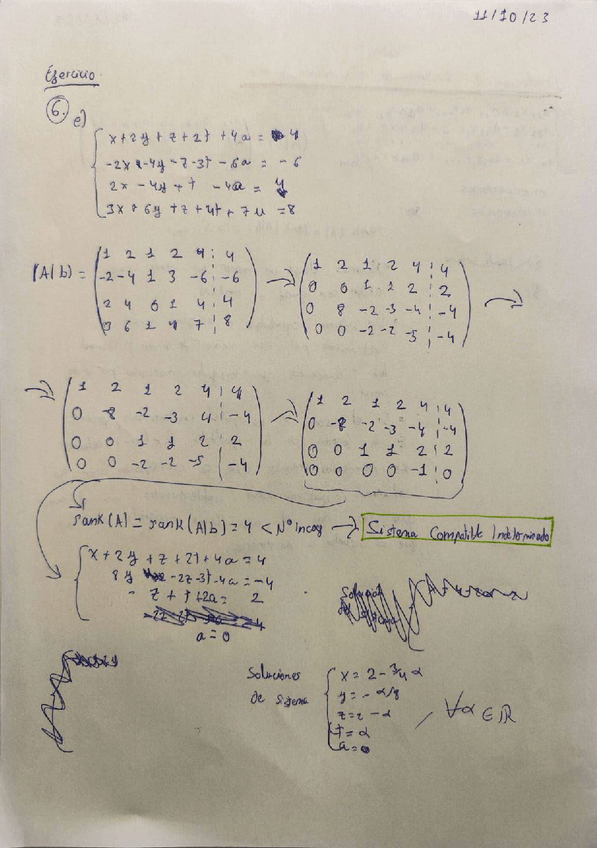 11/10/23
Ejercicio
6. e)
x+2y+z+2t+4a=4
-2x-4y-z-3t-6a=-6
2x-4y+t-4a=4
3x+6y+z+4t+7a=8
(A|b) = 1 2 1 2 4 | 4 → 1 2 1 2 4 | 4 →
-2 -4 1 3 -6 | -6 0 0 1 1 2 | 2
2 4 0 1 4 | 4 0 8 -2 -3 -4 | -4
3 6 1 4 7 | 8 0 0 -2 -2 -5 | -4
→ 1 2 1 2 4 | 4 → 1 2 1 2 4 | 4
0 -8 -2 -3 4 | -4 0 -8 -2 -3 -4 | -4
0 0 1 1 2 | 2 0 0 1 1 2 | 2
0 0 -2 -2 -5 | -4 0 0 0 0 -1 | 0
rank(A) = rank(A|b) = 4 < Nº incog → Sistema Compatible Indeterminado
x+2y+z+2t+4a=4
8y -2z-3t-4a=-4
- z+t+2a= 2
a=0
Soluciones
de sistema
x=2-3/4 α
y=-α/8
z=2-α
t=α
a=0
, ∀α∈ℝ